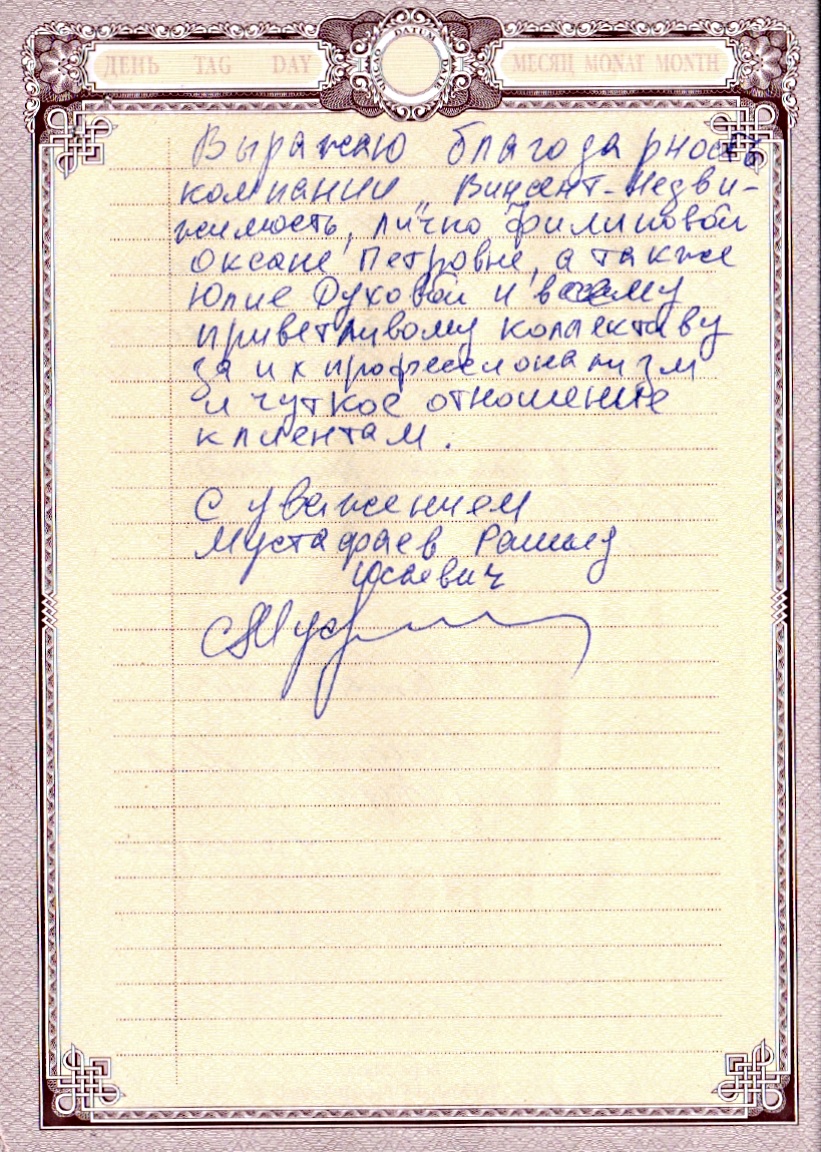 ДЕНЬ TAG DAY
DATUM
МЕСЯЦ MONAT MONTH
Выражаю благодарность
компании „Винсент-Недви-
жимость, лично Филиповой
Оксане Петровне, а также
Юлие Духовой и всему
приветливому коллективу
за их професслонализм
и чуткое отношение
клиентам.
С уважением
Мустафаев Рашид
Юсаевич